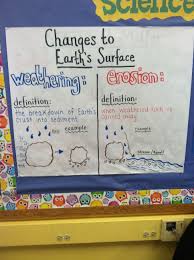 Science
Changes to
Earth's Surface
weathering:
definition:
the breakdown of Earth's
crust into sediment
example:
erosion:
definition:
when weathered rock is
carried away
example: